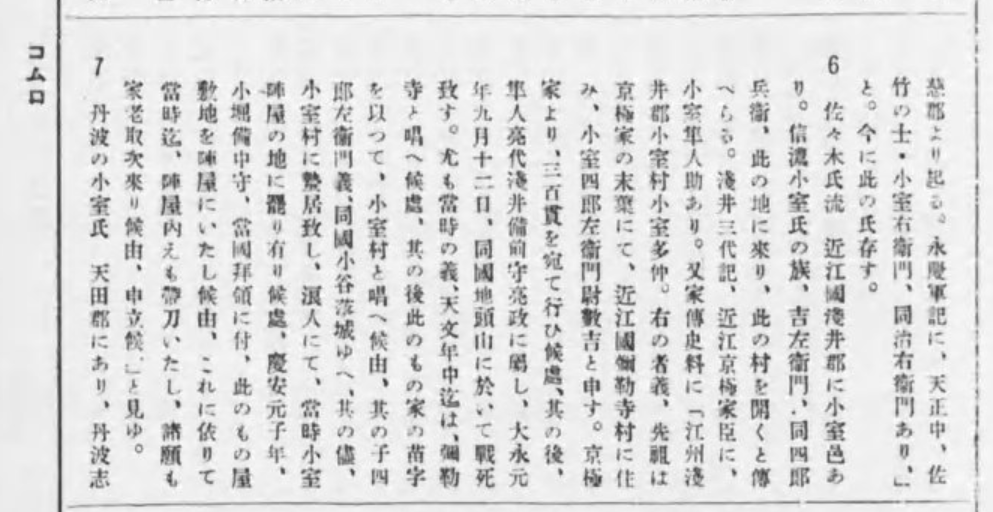 慈郡より起る。永慶軍記に、天正中、佐
竹の士・小室右衞門、同治右衞門あり、」
と。今に此の氏存す。
6 佐々木氏流 近江國淺井郡に小室邑あ
り。信濃小室氏の族、吉左衞門、同四郎
兵衞、此の地に來り、此の村を開くと傳
へらる。淺井三代記、近江京極家臣に、
小室隼人助あり。又家傳史料に「江州淺
井郡小室村小室多仲。右の者義、先祖は
京極家の末葉にて、近江國彌勒寺村に住
み、小室四郎左衞門尉數吉と申す。京極
家より、三百貫を宛て行ひ候處、其の後、
隼人亮代淺井備前守亮政に屬し、大永元
年九月十二日、同國地頭山に於いて戰死
致す。尤も當時の義、天文年中迄は、彌勒
寺と唱へ候處、其の後此のもの家の苗字
を以つて、小室村と唱へ候由、其の子四
郎左衞門義、同國小谷落城ゆへ、其の儘、
小室村に蟄居致し、浪人にて、當時小室
陣屋の地に罷り有り候處、慶安元子年、
小堀備中守、當國拜領に付、此のもの屋
敷地を陣屋にいたし候由、これに依りて
當時迄、陣屋内えも帶刀いたし、諸願も
家老取次來り候由、申立候、」と見ゆ。
7 丹波の小室氏 天田郡にあり、丹波志
コムロ